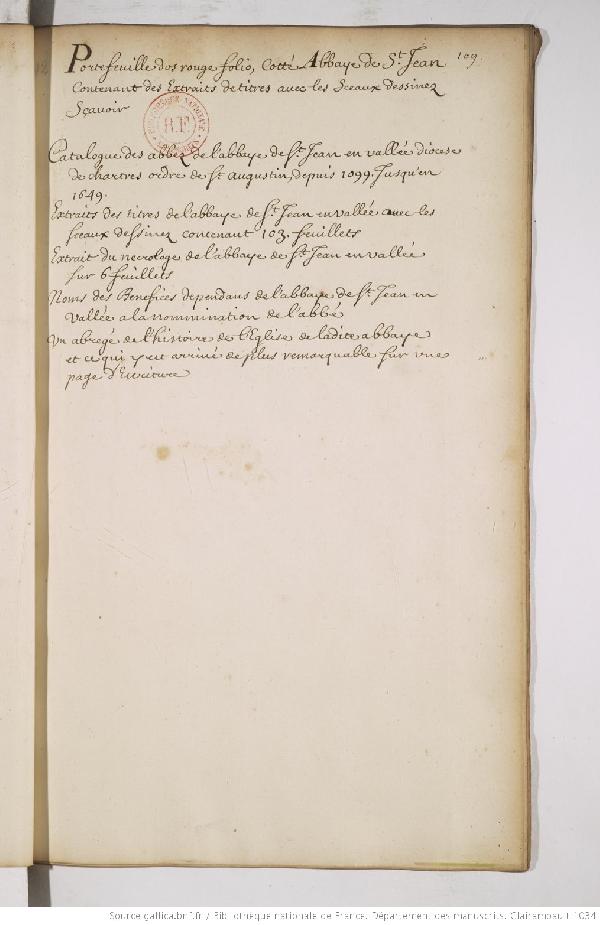 109
Portefeuille dos rouge folio, Cotté Abbaye de St. Jean
Contenant des Extraits de titres avec les Sceaux dessinez
Sçavoir
Catalogue des abbez de l'abbaye de St. Jean en vallée diocese
de chartres ordre de St augustin, depuis 1099. Jusqu'en
1649.
Extraits des titres de l'abbaye de St. Jean en vallée avec les
sceaux dessinez contenant 103. feuillets
Extrait du necrologe de l'abbaye de St. Jean en vallée
sur 6 feuillets
Noms des Benefices dependans de l'abbaye de St. Jean en
vallée a la nommination de l'abbé
Un abregé de l'histoire de l'Eglise de ladite abbaye
et ce qui y est arrivé de plus remarquable sur une
page d'Ecriture
Source gallica.bnf.fr / Bibliothèque nationale de France. Département des manuscrits. Clairambault 1034